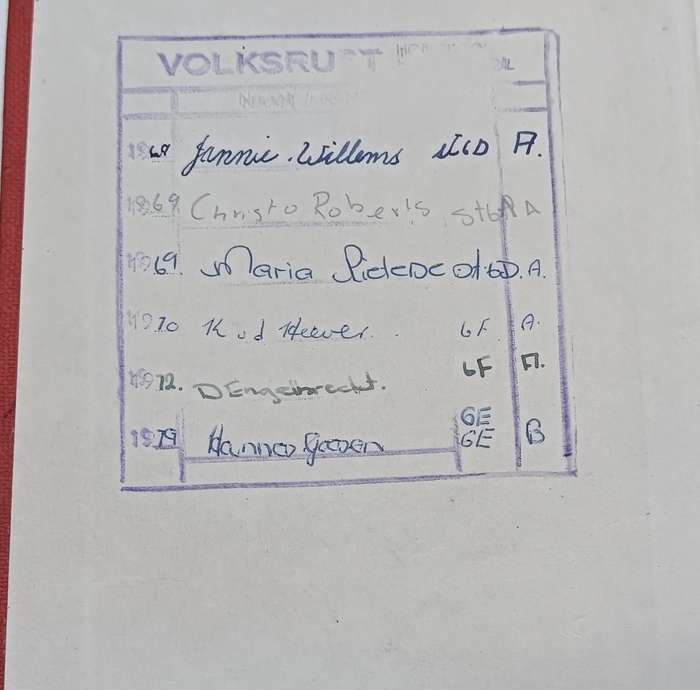 VOLKSRU T
1969 Jannie Willems D A.
1969 Christo Roberts St6 A
1969. Maria A.
1970 K v d Heever. 6F A.
1972. D Engelbrecht. 6F A.
1979 Hannes Goosen 6E 6E B